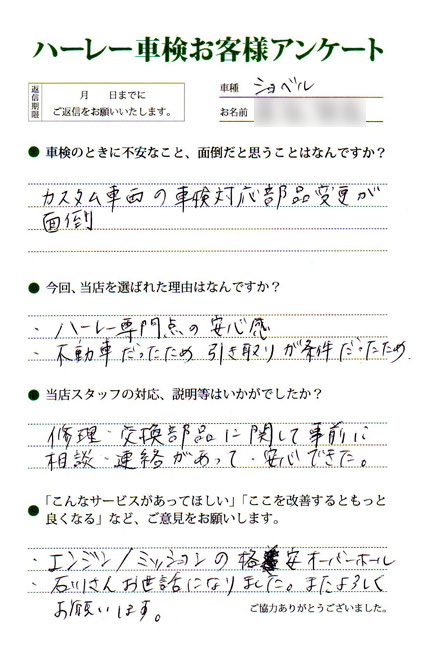 ハーレー車検お客様アンケート
返信期限
月　日までに
ご返信をお願いいたします。
車種　ショベル
お名前
● 車検のときに不安なこと、面倒だと思うことはなんですか？
カスタム車両の車検対応部品変更が
面倒
● 今回、当店を選ばれた理由はなんですか？
・ハーレー専門点の安心感
・不動車だったため 引き取りが条件だったため.
● 当店スタッフの対応、説明等はいかがでしたか？
修理・交換部品に関して事前に
相談・連絡があって・安心できた。
● 「こんなサービスがあってほしい」「ここを改善するともっと
良くなる」など、ご意見をお願いします。
・エンジン/ミッションの格安オーバーホール
・石川さんお世話になりました。またよろしく
お願いします。
ご協力ありがとうございました。